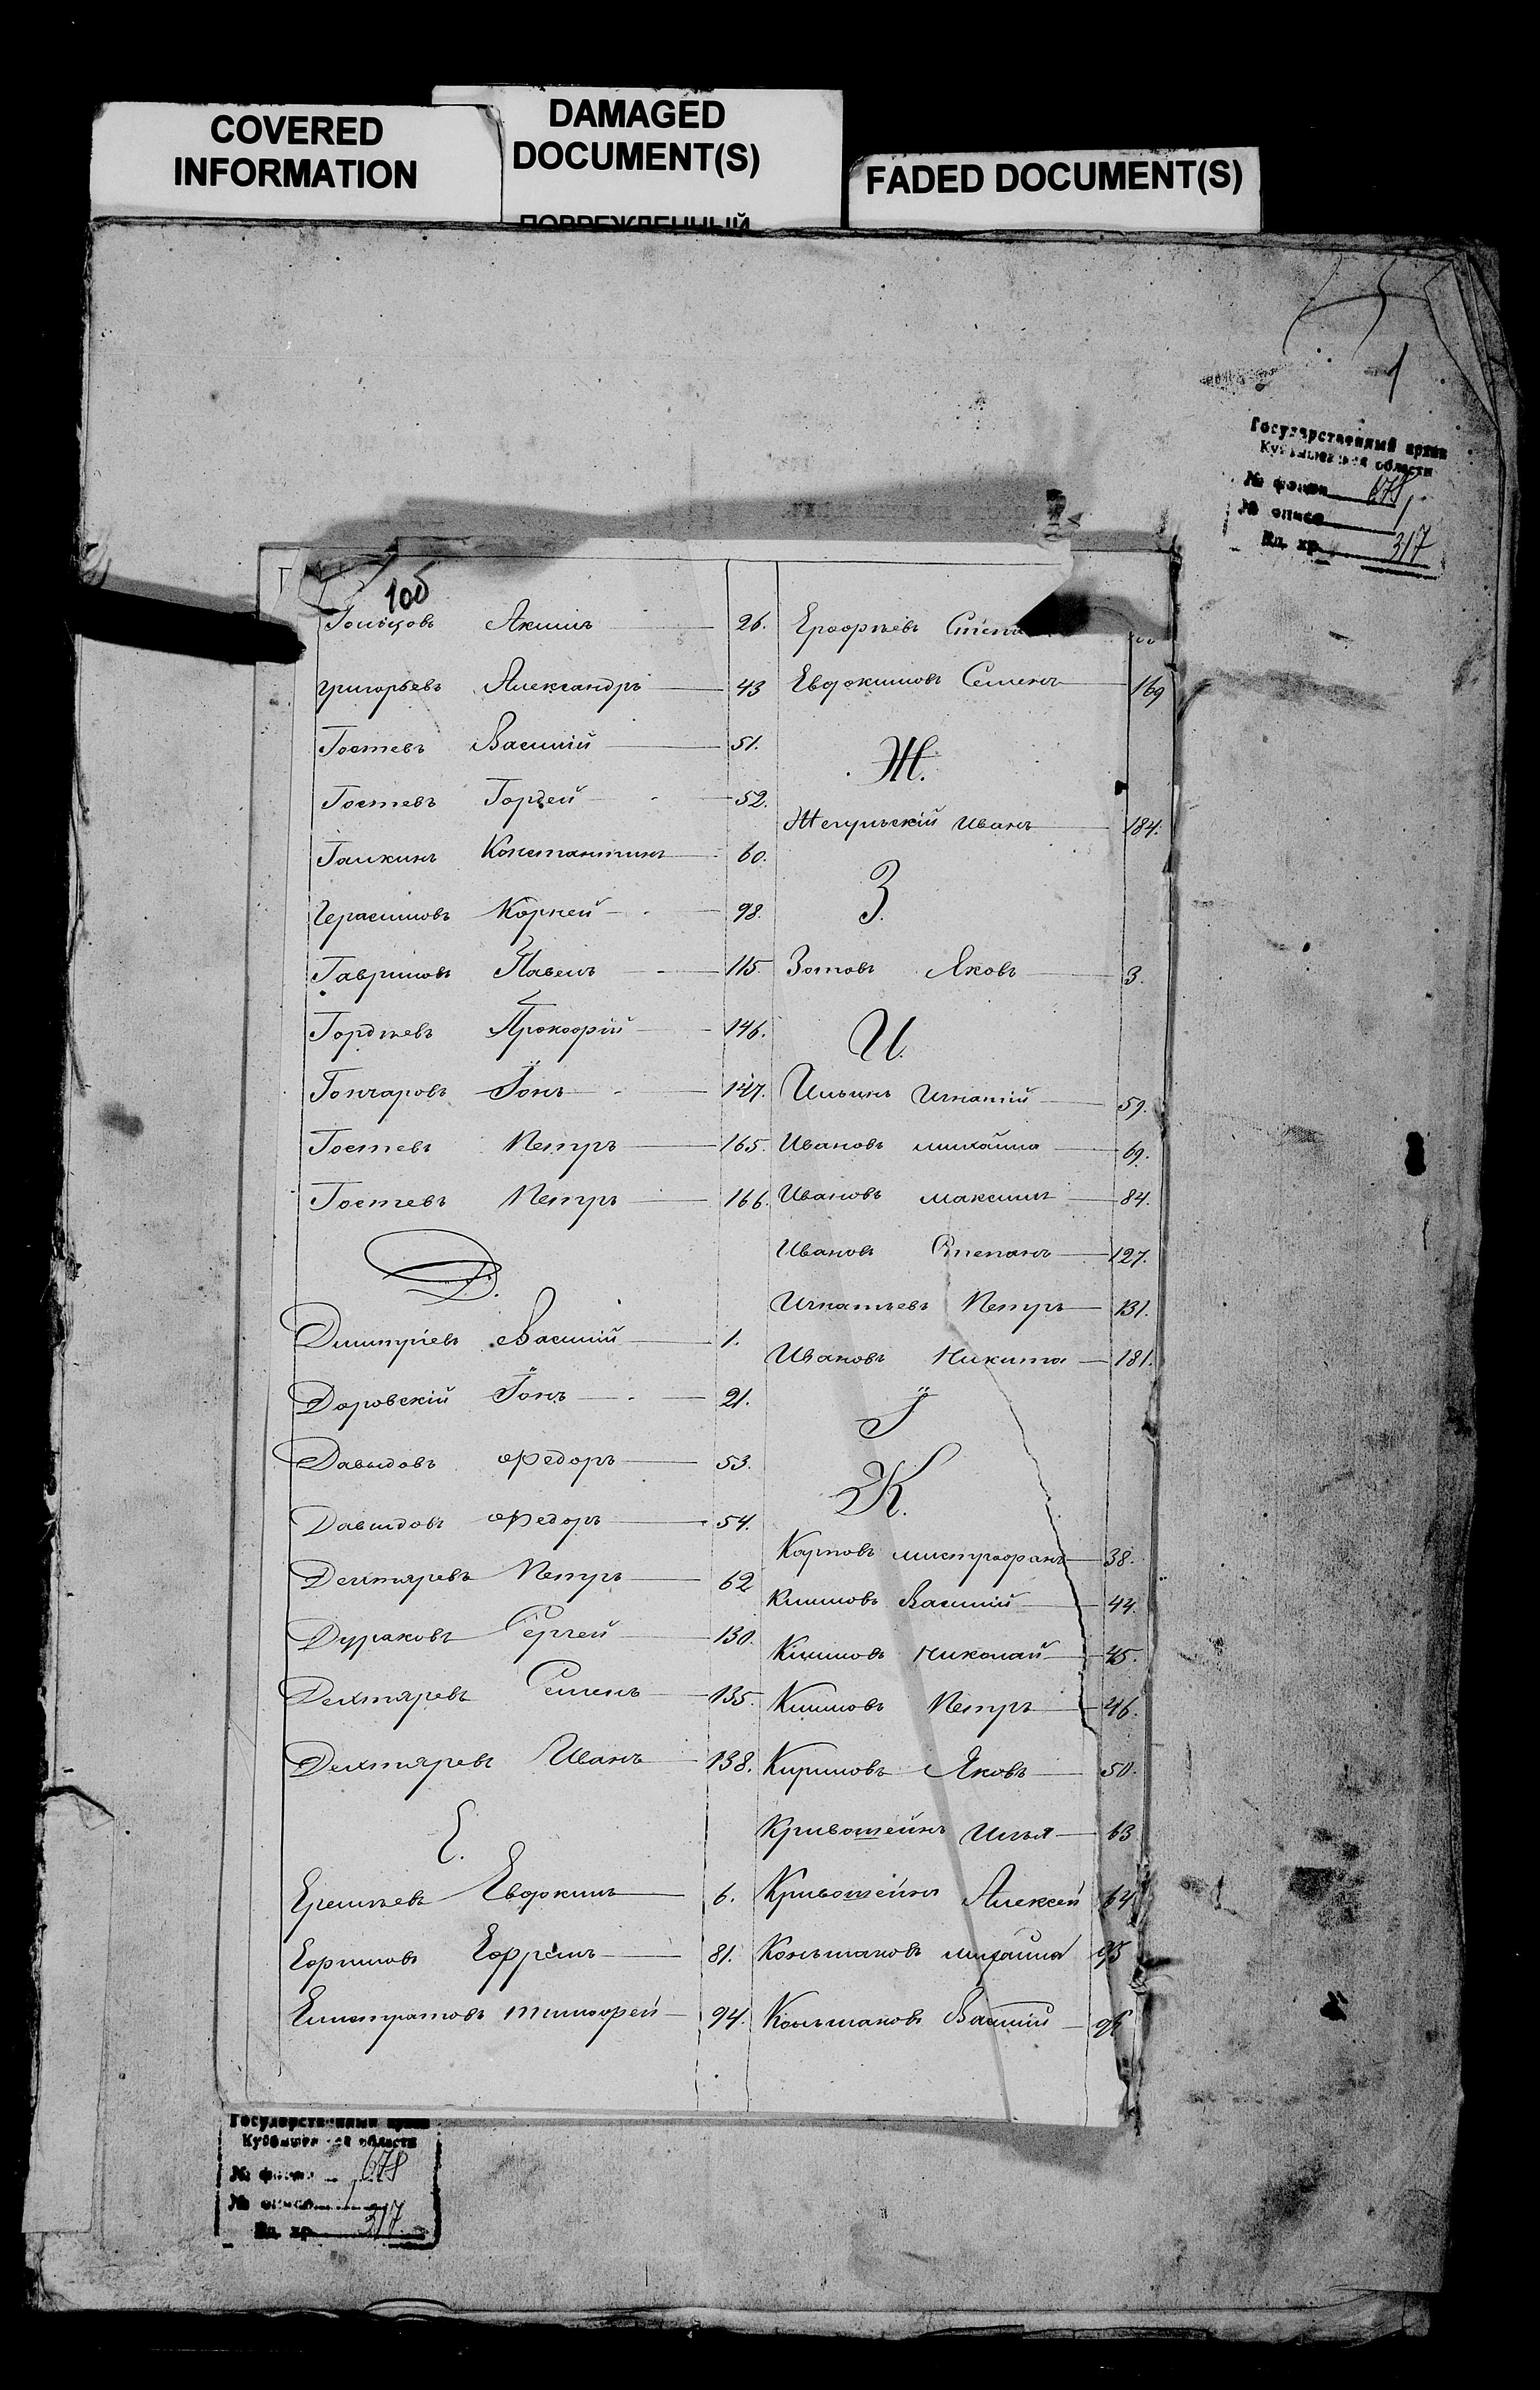 COVERED
INFORMATION
DAMAGED
DOCUMENT(S)
ПОВРЕЖДЕННЫЙ
FADED DOCUMENT(S)
1
Государственный архив
Куйбышевской области
№ фонда 678
№ описи 1
Ед. хр. 317
1об
Гольцовъ Акимъ 26.
Григорьевъ Александръ 43
Гостевъ Василій 51.
Гостевъ Гордей 52.
Галкинъ Константинъ 60.
Герасимовъ Корней 98.
Гавриловъ Павелъ 115.
Гордѣевъ Прокофій 146.
Гончаровъ Іонъ 147.
Гостевъ Петръ 165.
Гостевъ Петръ 166.
Д.
Дмитріевъ Василій 1.
Доровскій Іонъ 21.
Давыдовъ Федоръ 53.
Давыдовъ Федоръ 54.
Дехтяревъ Петръ 62
Дураковъ Сергей 130.
Дехтяревъ Семенъ 135.
Дехтяревъ Иванъ 138.
Е.
Еремѣевъ Евдокимъ 6.
Ефримовъ Ефремъ 81.
Елистратовъ Тимофей 94.
Ерофѣевъ
Евдокимовъ Семенъ 169
Ж.
Жегульскій Иванъ 184.
З.
Зотовъ Яковъ 3.
И.
Ильинъ Игнатій 59.
Ивановъ Михайла 69.
Ивановъ Максимъ 84.
Ивановъ Степанъ 127.
Игнатьевъ Петръ 131.
Ивановъ Никита 181.
І
К.
Карповъ Митрофанъ 38.
Климовъ Василій 44.
Климовъ Николай 45.
Климовъ Петръ 46.
Кириловъ Яковъ 50.
Кривошеинъ Илья 63
Кривошеинъ Алексей 64
Кольмаковъ Михайла 95
Кольмаковъ Василій 96
Государственный архив
Куйбышевской области
№ фонда 678
№ описи 1
Ед. хр. 317